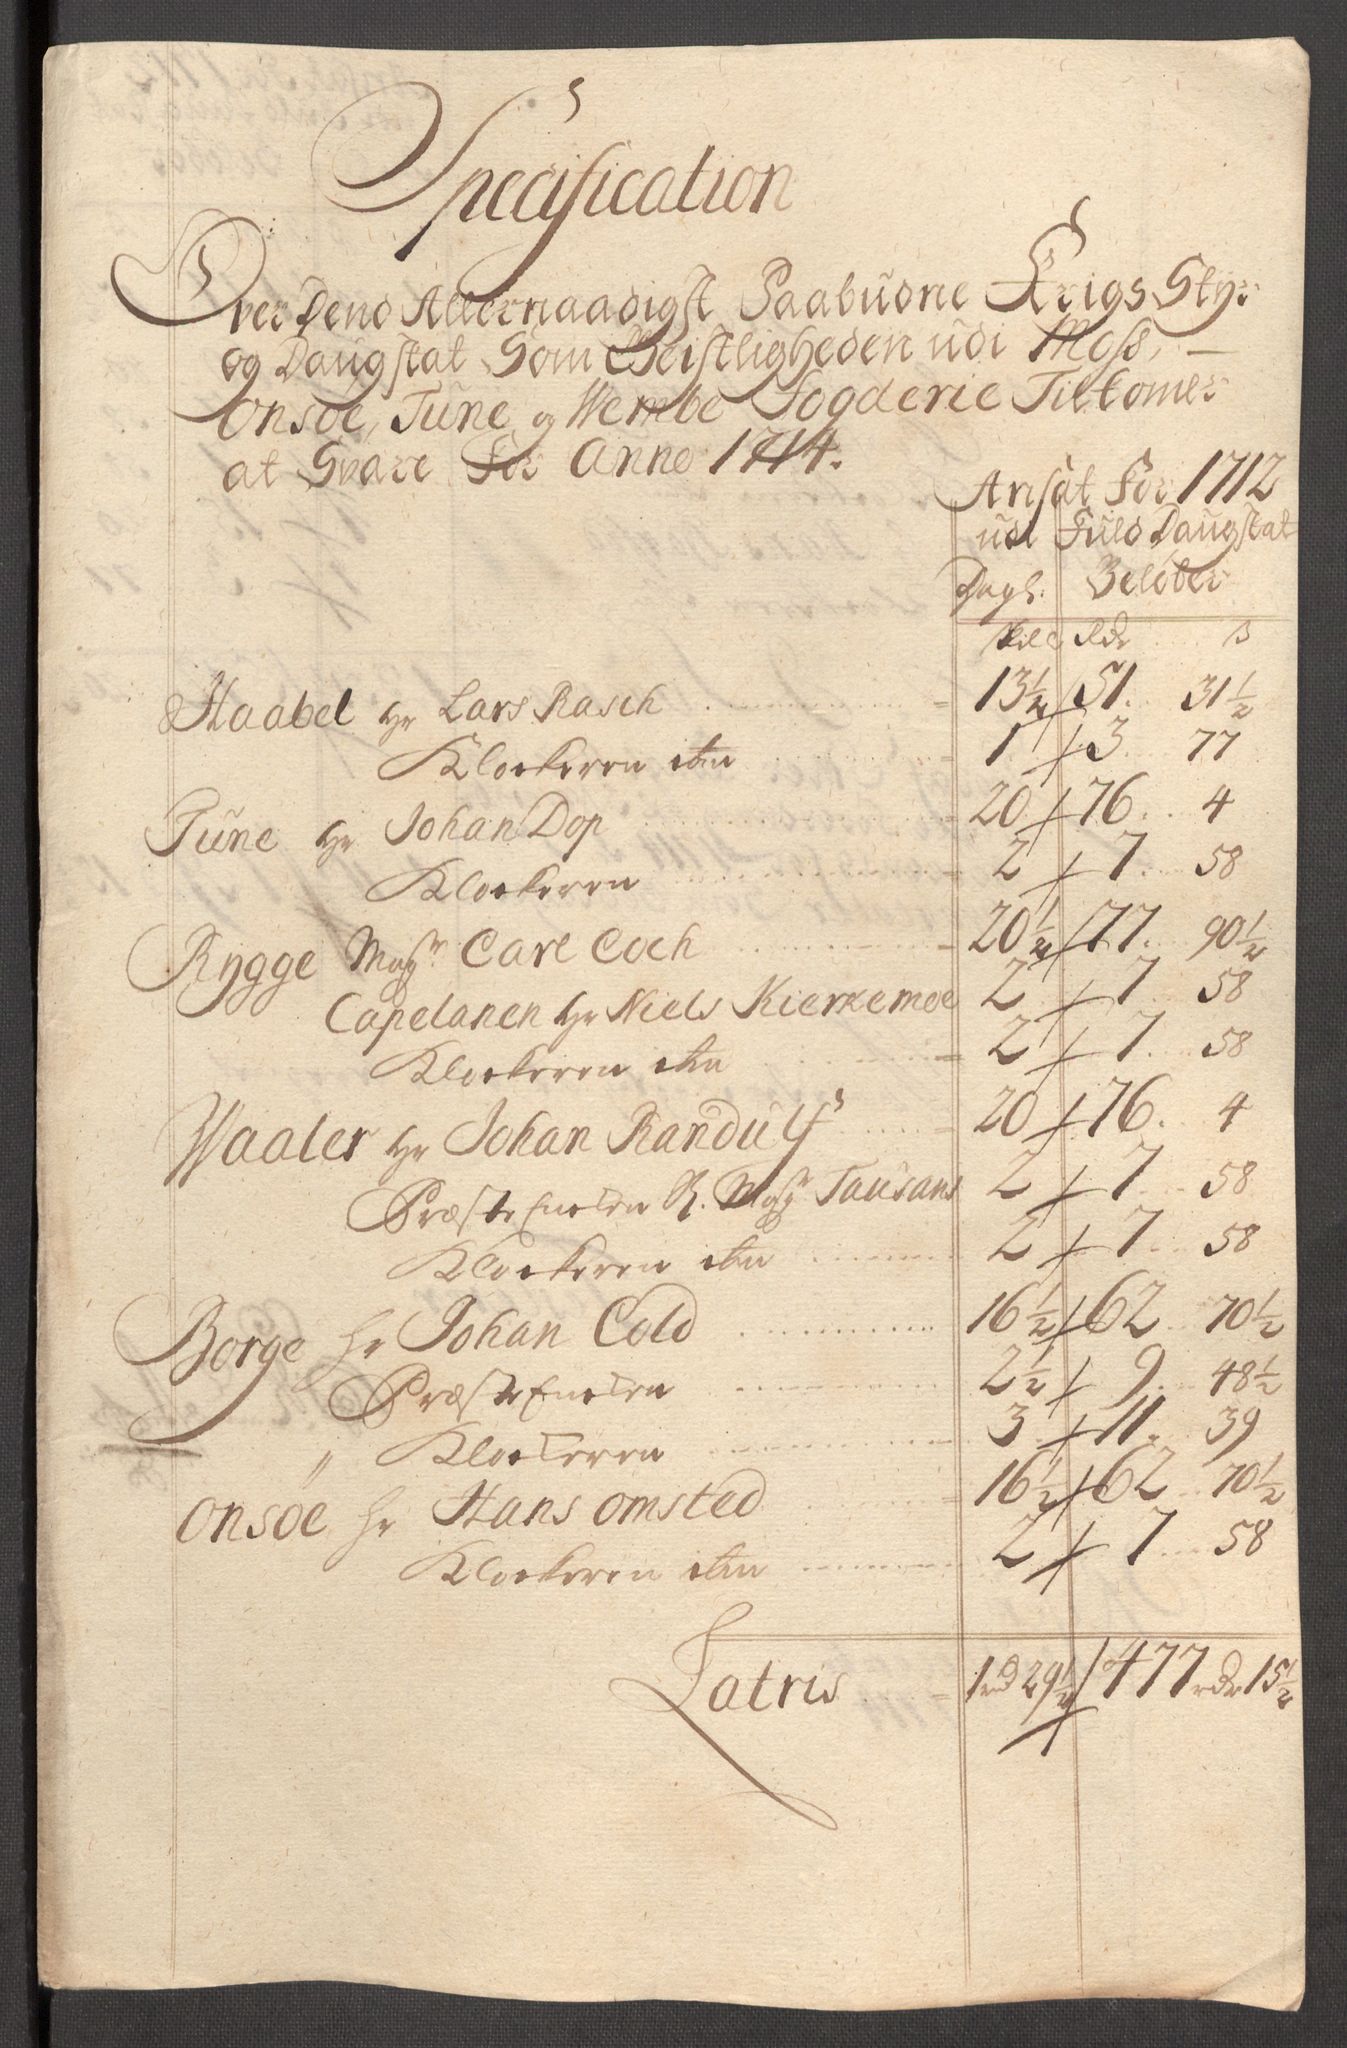 Specification
Over Dend Allernaadigst Paabudne Krigs Styr
og Daugstat Som Geistligheden udi Moss,
Onsöe, Tune, og Wembe Fogderie Tilkomer
at Svare For Anno 1714.
Ansat For 1712
udi Fuld Daugstat
Dagl: Belöber
skill rdr s
Haabel Hr Lars Rasch 13½ 51. 31½
Klockeren 1 3 77
Tune Hr Johan Dop 20 76. 4
Klockeren 2 7. 58
Rygge Magr Carl Coch 20½ 77. 90½
Capelanen Hr Niels Kierkemoe 2 7 58
Klockeren 2 7. 58
Waaler Hr Johan Randulf 20 76. 4
Præste Encken S. Magr Tausans 2 7 58
Klockeren 2 7 58
Borge Hr Johan Cold 16½ 62 70½
Præste Encken 2½ 9 48½
" Klockeren 3 11. 39
Onsöe Hr Hans Omsted 16½ 62 70½
Klockeren 2 7 58
Latris 1rd 29½ 477 rdr 15½